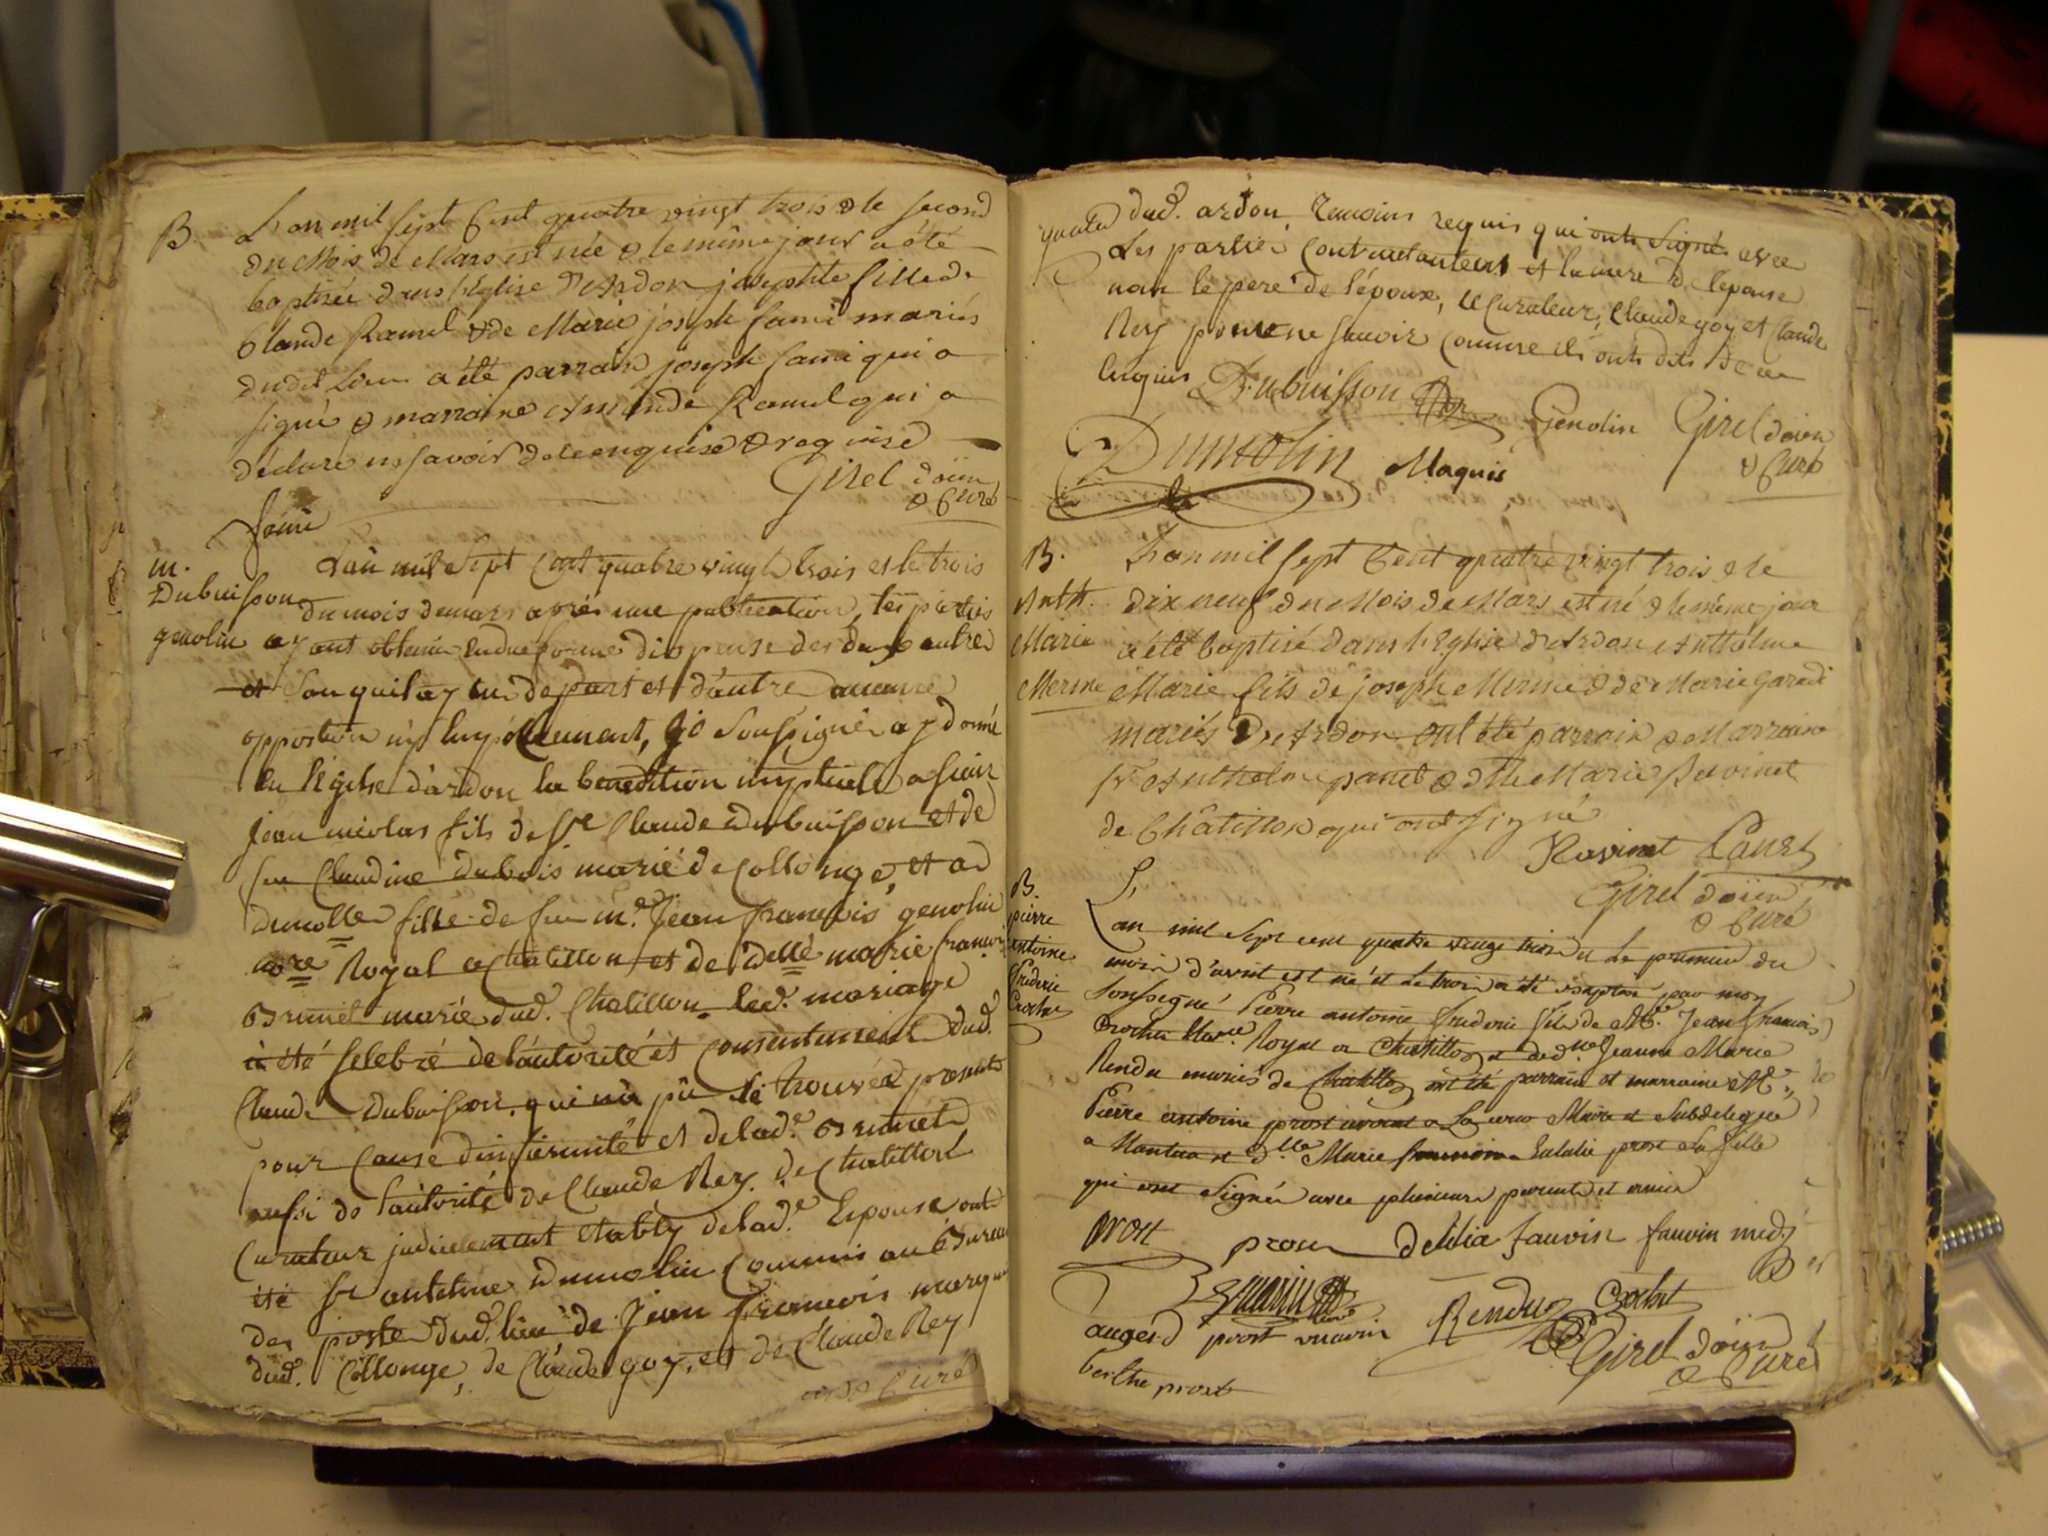 B. L'an mil sept cent quatre vingt trois & le second
du Mois de Mars est née & le même jour a été
baptisée dans l'Eglise d'Ardon josephte fille de
Claude Ramel & de Marie joseph famé mariés
dudit Lieu a été parrain joseph famé qui a
signé & marraine Ramel qui a
déclaré ne savoir de ce enquise & requise
Girel doïen
& Curé
famé
m.
Dubuisson
genolin
L'an mil sept cent quatre vingt trois et le trois
du mois de mars après une publication, les parties
ayant obtenu en due forme dispense des deux autres
et sans quil ay eu de part et d'autre aucune
oppostion ny empéchement, je soussigné ay donné
en l'église d'ardon la benedition nuptiale a sieur
jean nicolas fils de Sr Claude Dubuisson et de
feu Claudine dubois marié de Collonge, et a
demolle fille de feu me Jean françois genolin
nore Royal a Chatillon et de delle marie
Brunet marié dud. Chatillon led. mariage
à été selebré de l'autorité et consentement dud.
Claude Dubuisson. qui na pû se trouver present
pour cause dinfirmité et de lad.e Brunet
aussi de l'autorité de Claude Rey. de Chatillon
Curateur judicielement etably de lad.e Epouse ont
été Sr antelme Dumolin Commis au Bureau
des postes dud. lieu de Jean françois
dud. Collonge, de Claude goy, et de Claude Rey
Curé
dud. ardon, Temoins requis qui onts signé avec
Les partiés contractantens et la mere de l'epouse
non le pere de l'époux, le Curateur, Claude goy et Claude
Rey pour ne savoir comme ils onts dits de ce
enquis Dubuisson Genolin Girel doïen
& Curé
Dumolin Maquis
B.
Anth.
Marie
Merme
L'an mil sept Cent quatre vingt trois & le
dix neuf du Mois de Mars est né & le même jour
a été baptisé dans l'Eglise d'Ardon Anthelme
Marie fils de joseph Merme & de Marie
mariés d'Ardon ont été parrain & Marraine
Sr Anthelme panet & dlle Marie Ravinet
de Châtillon qui ont signé
Ravinet Panet
Girel doïen
& Curé
B.
pierre
antoine
frideric
Crochet
L'an mil sept cent quatre vingt trois et le premier du
mois d'avril est né et le trois a été baptisé par moy
soussigné Pierre antoine frideric fils de Me. Jean françois
Crochet Nore. Royal a Chatillon et de dlle. Jeanne Marie
Rendu mariés de Chatillon ont été parrain et marraine Me.
Pierre antoine prost avocat Maire et Subdelegué
a Nantua et dlle Marie Eulalie prost sa fille
qui ont signés avec plusieurs parents et amis
prost prost delilia fauvin fauvin med.
Rendu Crochet
auger prost
berthe prost
Girel doïen
& Curé